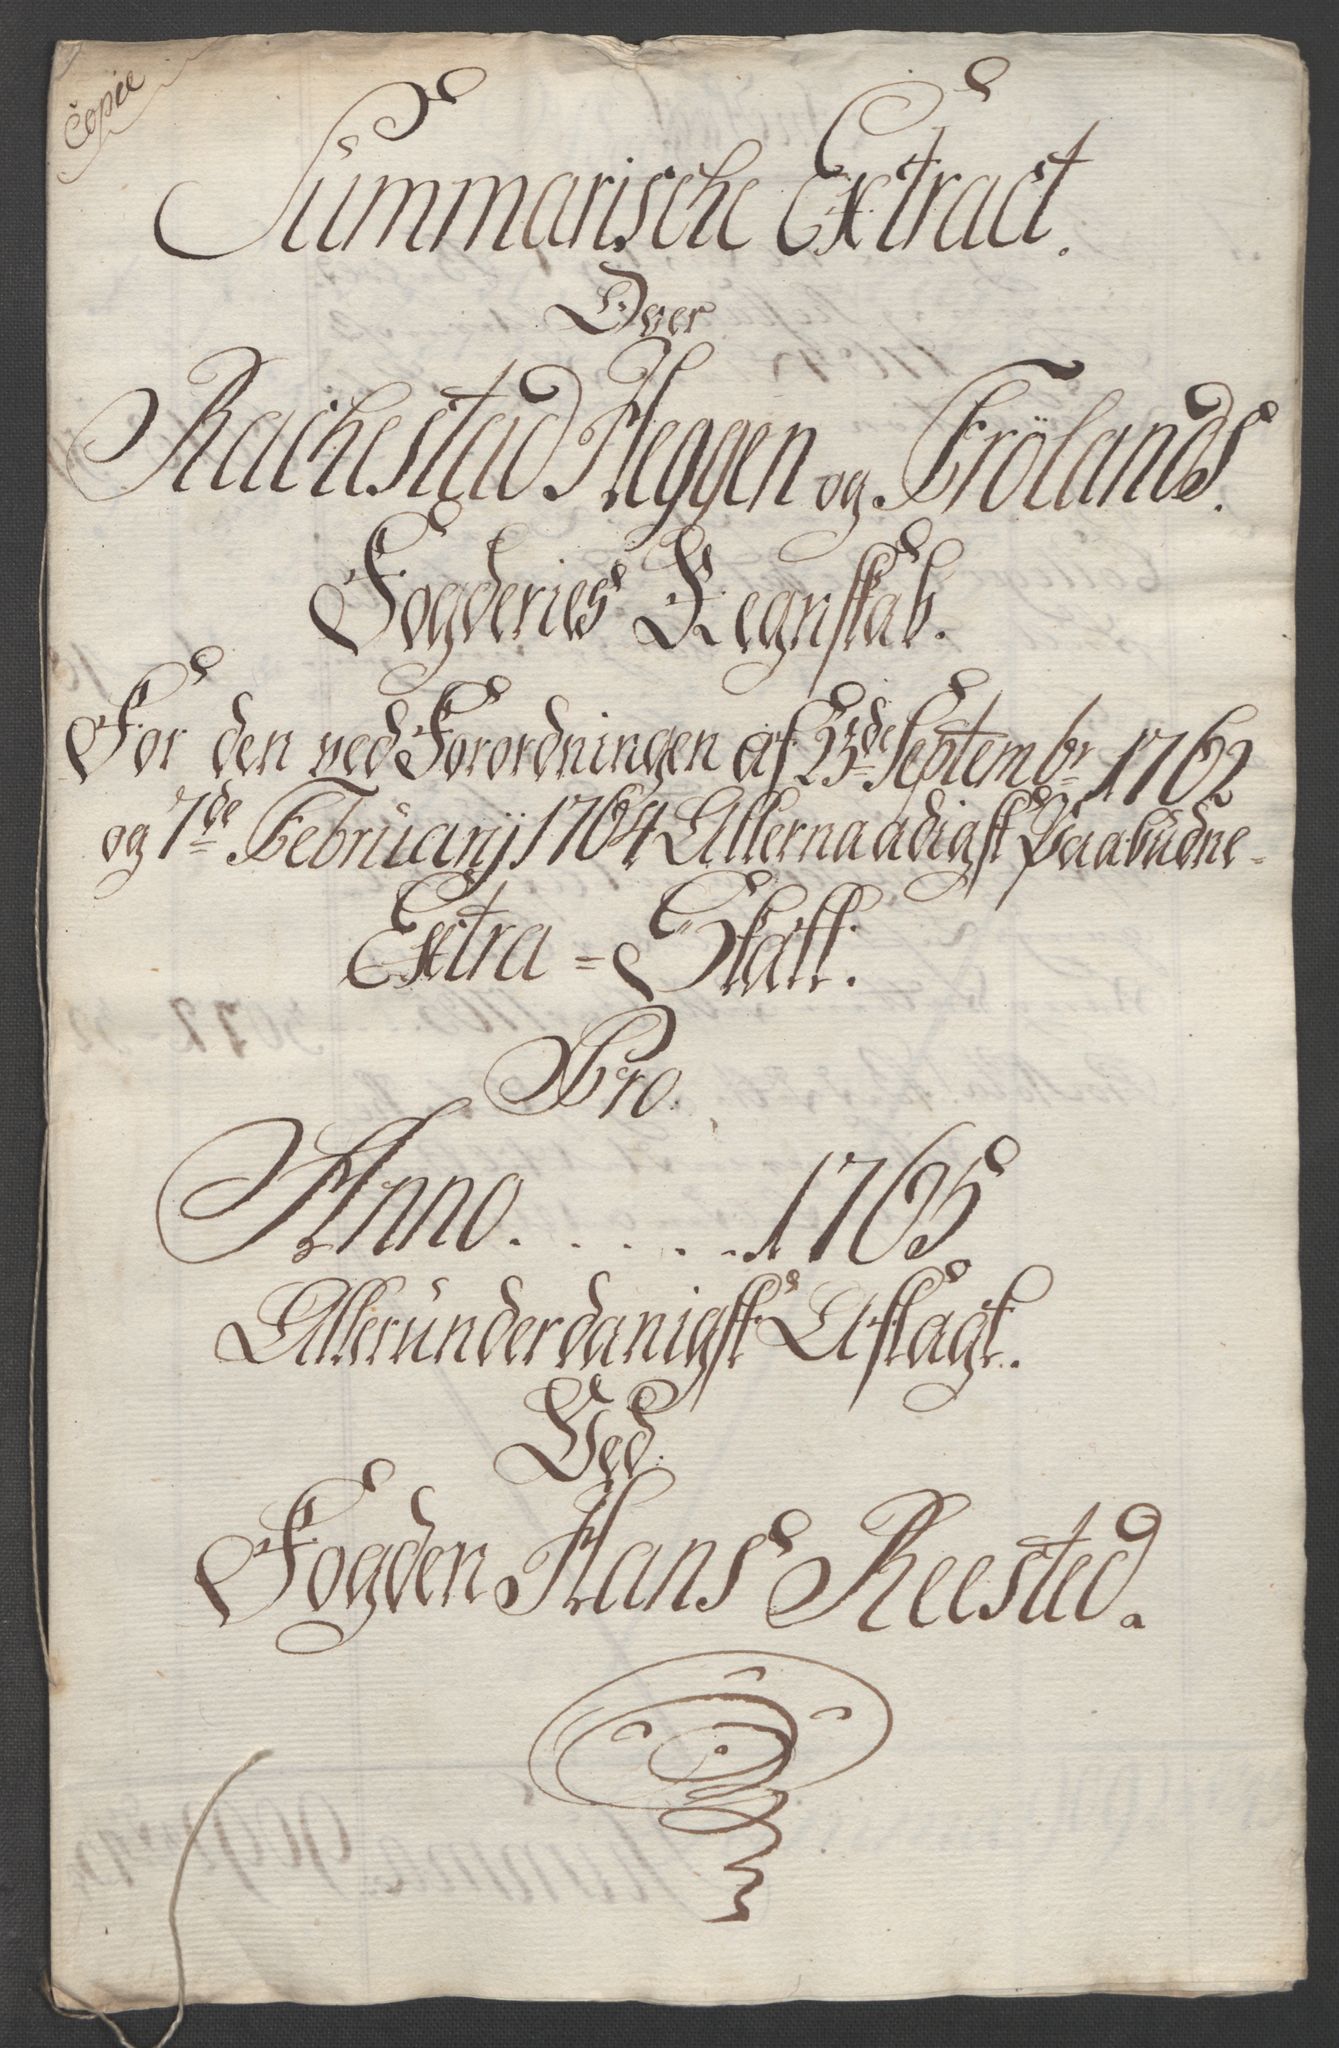 Copie
Summarische Extract.
Over
Rachestad Heggen og Frölands
Fogderies Regnskab.
For den ved Forordningen af 23de Septembr 1762
og 7de Februarij 1764 Allernaadigst Paabudne
Extra-Skatt.
Pro
Anno.....1765
Allerunderdanigst Aflagt.
Ved
Fogden Hans Reested.